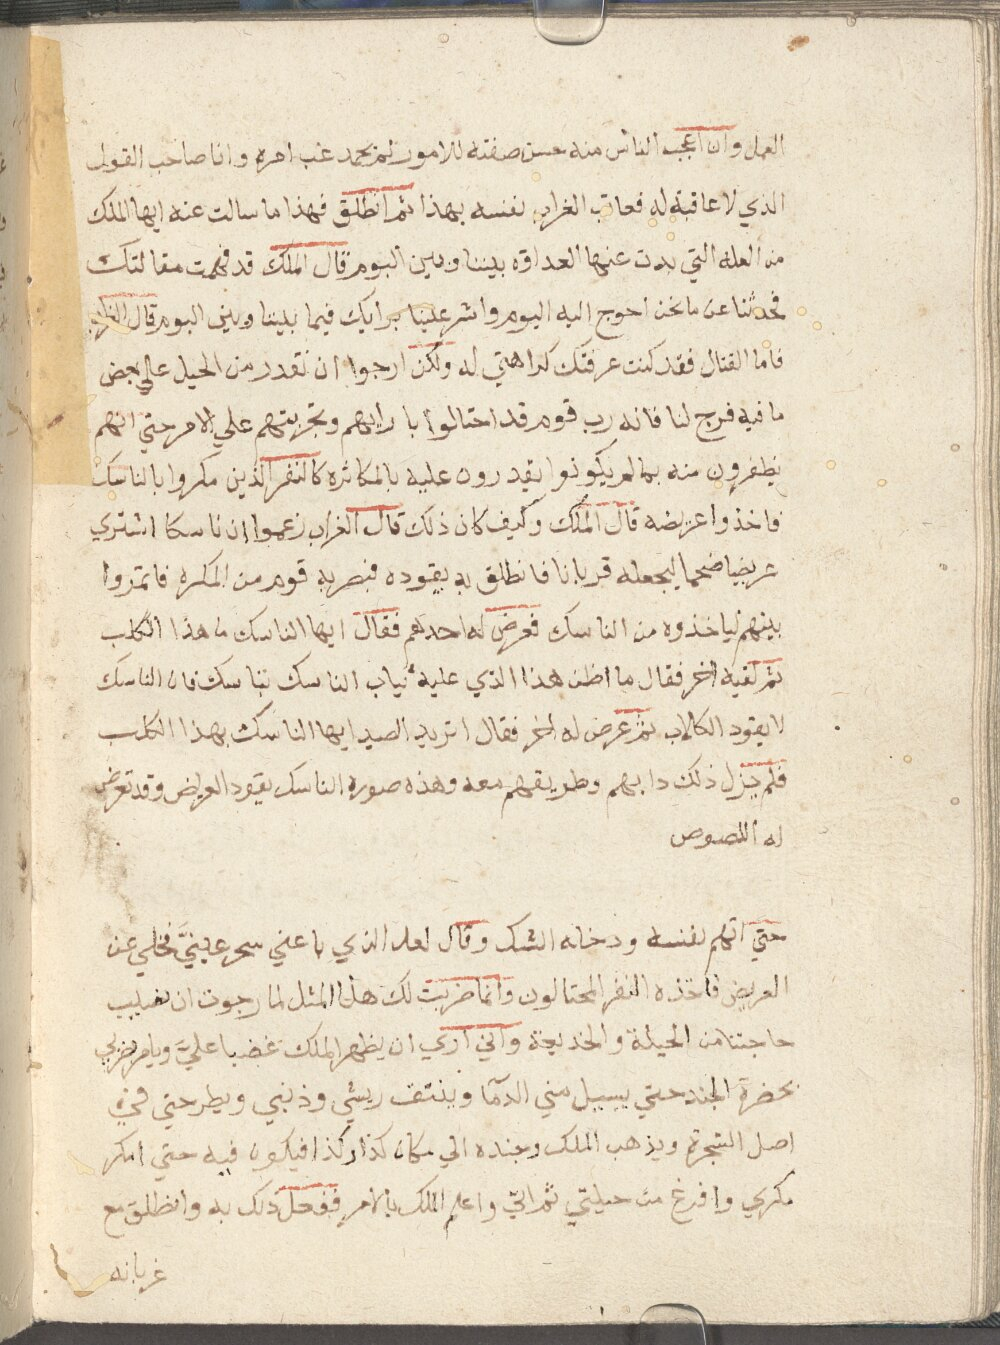 العمل وان اعجب الناس منه حسن صفته للامور لم يحمد غب امره وانا صاحب القول
الذي لا عاقبة له فعاتب الغراب نفسه بهذا ثم انطلق فهذا ما سالت عنه ايها الملك
من العله التي بدت عنها العداوه بيننا وبين البوم قال الملك قد فهمت مقالتك
فحدثنا عن ما نحن احوج اليه اليوم واشر علينا برايك فيما بيننا وبين البوم قال الغراب
فاما القتال فقد كنت عرفتك كراهتي له ولكن ارجوا ان نقدر من الحيل علي بعض
ما فيه فرج لنا فانه رب قوم قد احتالوا بارايهم وتجربتهم علي الامر حتي انهم
يظفرون منه بما لم يكونوا يقدرون عليه بالمكاثره كالنفر الذين مكروا بالناسك
فاخذوا عريضه قال الملك وكيف كان ذلك قال الغراب زعموا ان ناسكا اشتري
عريضا ضخما ليجعله قربانا فانطلق به يقوده فبصر به قوم من المكره فاتمروا
بينهم لياخذوه من الناسك فعرض له احدهم فقال ايها الناسك ما هذا الكلب
ثم لقيه اخر فقال ما اظن هذا الذي عليه ثياب الناسك بناسك فان الناسك
لا يقود الكلاب ثم عرض له اخر فقال اتريد الصيد ايها الناسك بهذا الكلب
فلم يزل ذلك دابهم وطريقهم معه وهذه صورة الناسك يقود العريض وقد تعرض
له اللصوص
حتي اتهم نفسه ودخله الشك وقال لعل الذي باعني سحر عينيَّ فخلي عن
العريض فاتخذه النفر المحتالون وانما ضربت لك هذا المثل لما رجوت ان نصيب
حاجتنا من الحيلة والخديعة واني اري ان يظهر الملك غضبا عليّ ويامر بضربي
بحضرة الجند حتي يسيل مني الدما وينتف ريشي وذنبي ويطرحني في
اصل الشجرة ويذهب الملك وجنده الي مكان كذا وكذا فيكون فيه حتي امكر
مكري وافرغ من حيلتي ثم اتي واعلم الملك بالامر ففعل ذلك به وانطلق مع
غربانه